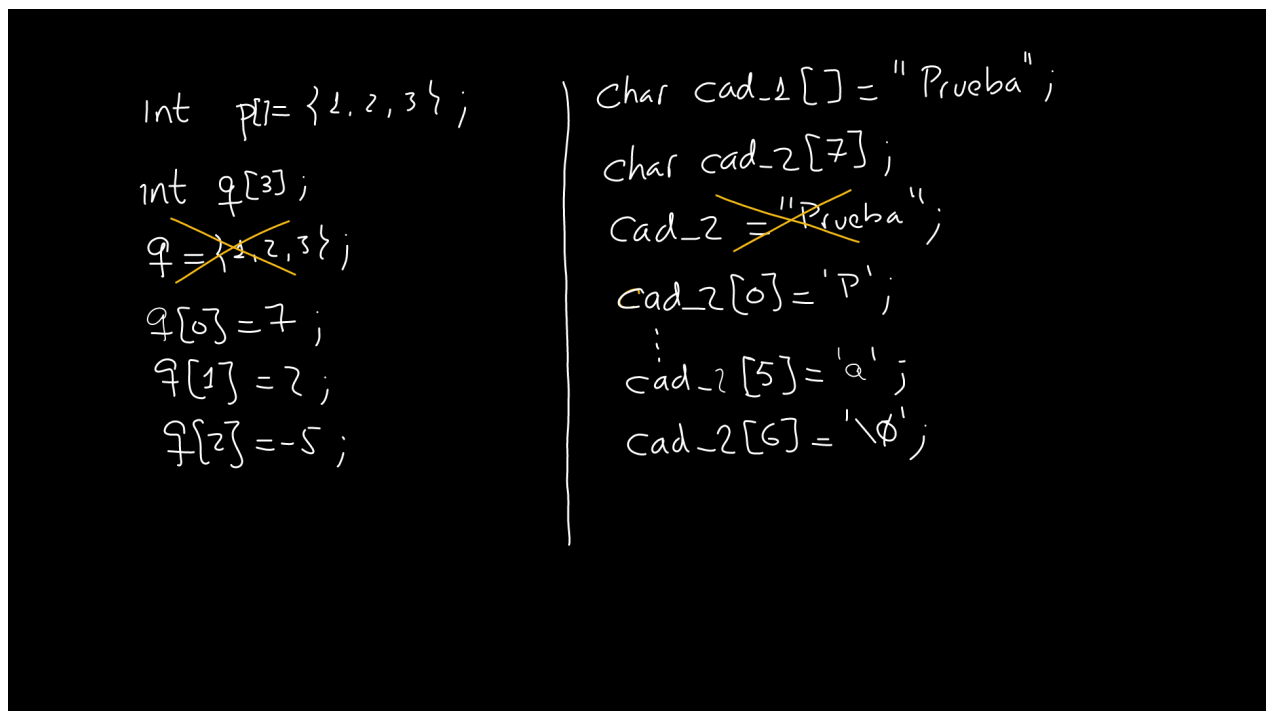 int p[]= {1, 2, 3} ;
int q[3] ;
q = {1, 2, 3} ;
q[0] = 7 ;
q[1] = 2 ;
q[2] = -5 ;
char cad_1[] = "Prueba" ;
char cad_2[7] ;
cad_2 = "Prueba" ;
cad_2[0] = 'P' ;
cad_2[5] = 'a' ;
cad_2[6] = '\0' ;